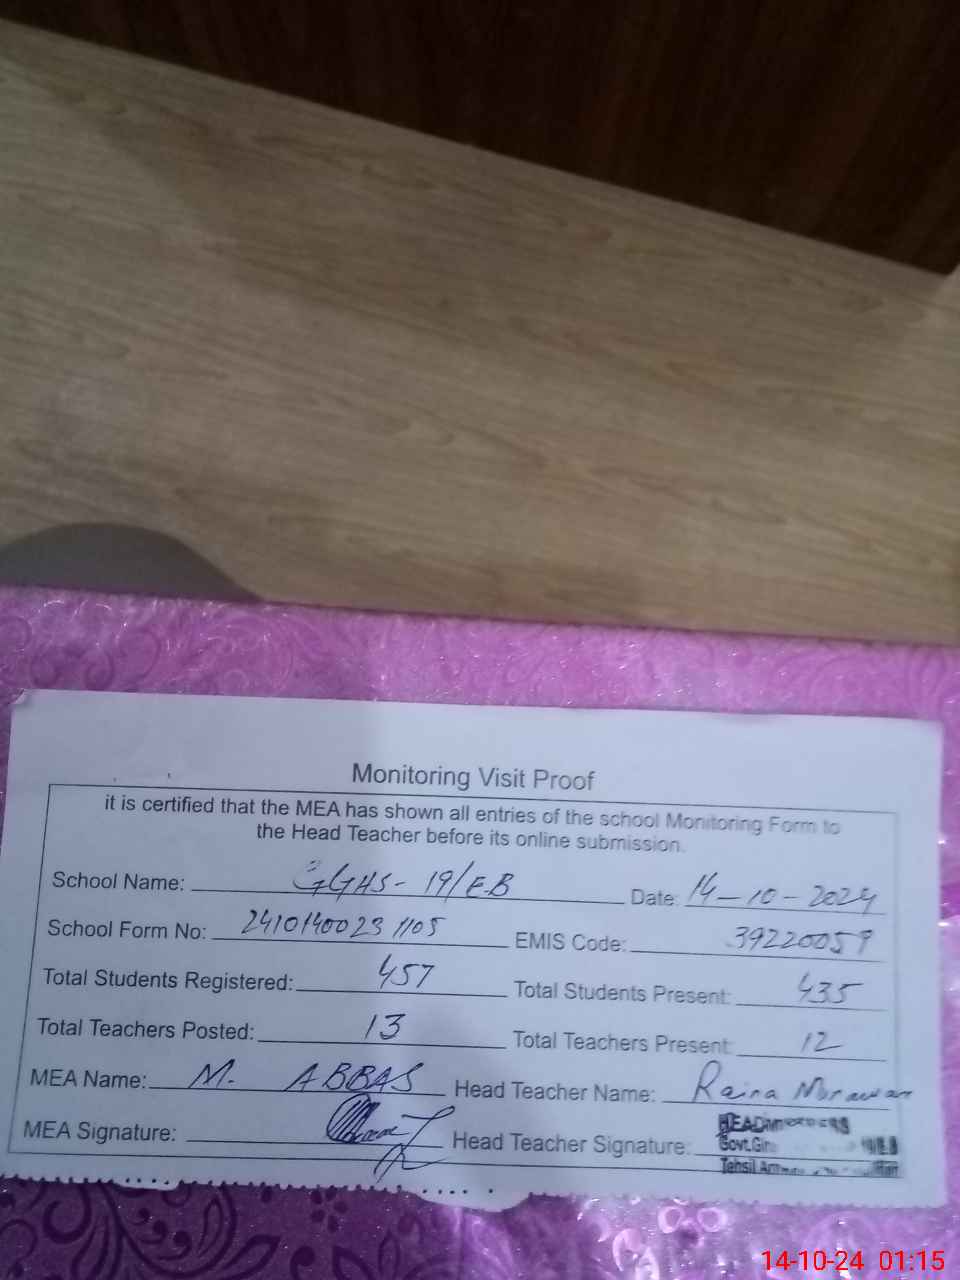 Monitoring Visit Proof
it is certified that the MEA has shown all entries of the school Monitoring Form to
the Head Teacher before its online submission.
School Name: GGHS - 19/EB Date: 14-10-2024
School Form No: 24101400231105 EMIS Code: 39220059
Total Students Registered: 457 Total Students Present: 435
Total Teachers Posted: 13 Total Teachers Present: 12
MEA Name: M. ABBAS Head Teacher Name: Raina
MEA Signature: Head Teacher Signature:
Govt.
Tehsil
14-10-24 01:15